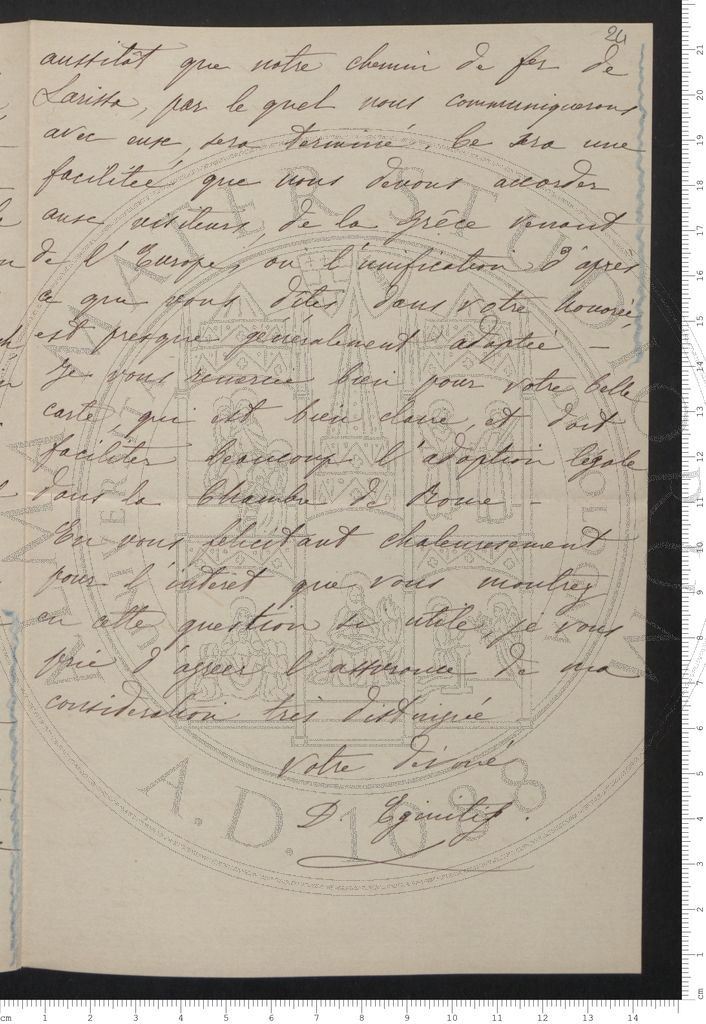 24
aussitôt que notre chemin de fer de
Larissa, par le quel nous communiquerons
avec eux, sera terminé. Ce sera une
facilitée que nous devons accorder
aux visiteurs de la Grèce venant
de l'Europe, ou l'unification d'après
ce que vous dites dans votre honorée,
est presque généralement adoptée –
Je vous remercie bien pour votre belle
carte, qui est bien claire, et doit
faciliter beaucoup l'adoption légale
dans la Chambre de Rome –
En vous félicitant chaleureusement
pour l'intéret que vous montrez
en cette question si utile, je vous
prie d'agréer l'assurance de ma
considération très distinguée
Votre dévoué
D. Eginitis.
ALMA MATER STUDIORUM
A.D. 1088